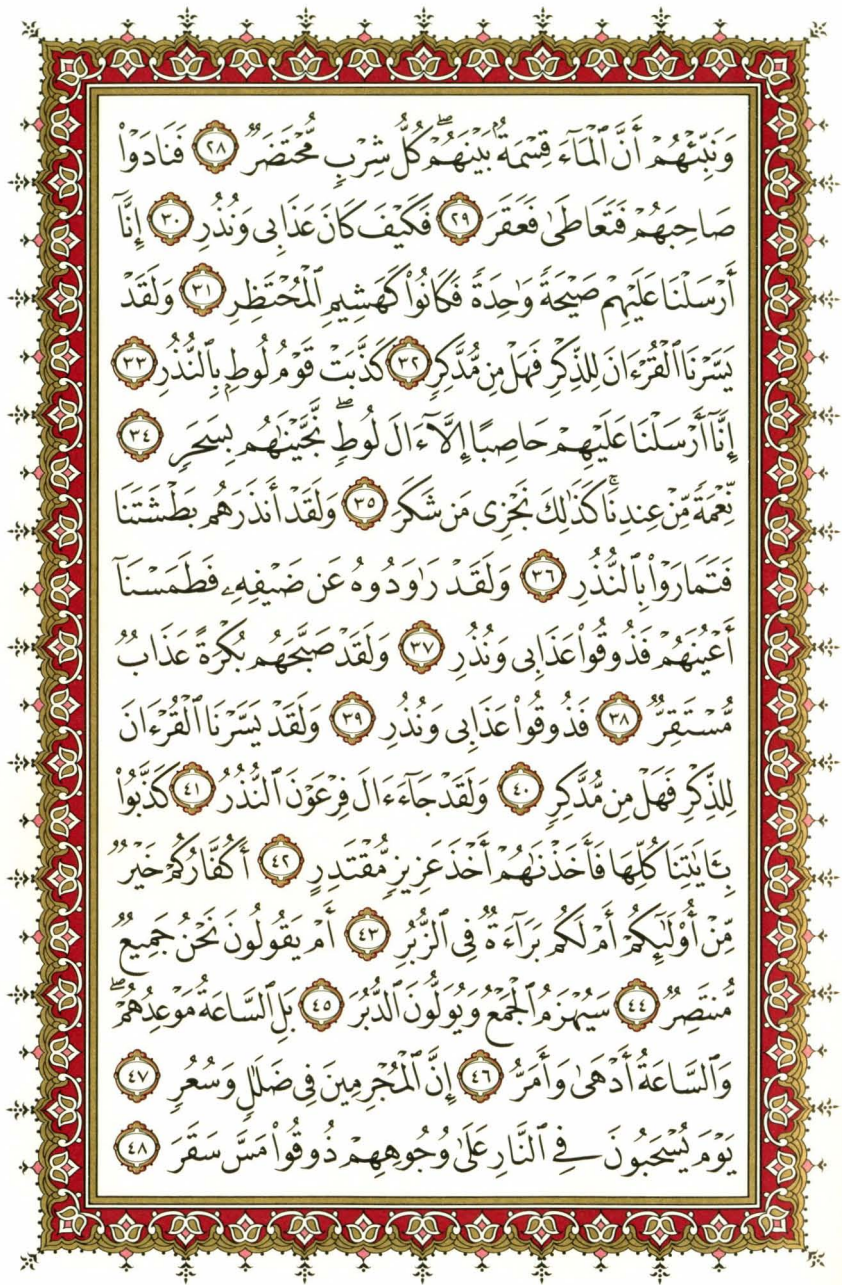 وَنَبِّئْهُمْ أَنَّ ٱلْمَآءَ قِسْمَةٌۢ بَيْنَهُمْ ۖ كُلُّ شِرْبٍ مُّحْتَضَرٌ ٢٨ فَنَادَوْا۟
صَاحِبَهُمْ فَتَعَاطَىٰ فَعَقَرَ ٢٩ فَكَيْفَ كَانَ عَذَابِى وَنُذُرِ ٣٠ إِنَّآ
أَرْسَلْنَا عَلَيْهِمْ صَيْحَةً وَٰحِدَةً فَكَانُوا۟ كَهَشِيمِ ٱلْمُحْتَظِرِ ٣١ وَلَقَدْ
يَسَّرْنَا ٱلْقُرْءَانَ لِلذِّكْرِ فَهَلْ مِن مُّدَّكِرٍ ٣٢ كَذَّبَتْ قَوْمُ لُوطٍۭ بِٱلنُّذُرِ ٣٣
إِنَّآ أَرْسَلْنَا عَلَيْهِمْ حَاصِبًا إِلَّآ ءَالَ لُوطٍ ۖ نَّجَّيْنَٰهُم بِسَحَرٍ ٣٤
نِّعْمَةً مِّنْ عِندِنَا ۚ كَذَٰلِكَ نَجْزِى مَن شَكَرَ ٣٥ وَلَقَدْ أَنذَرَهُم بَطْشَتَنَا
فَتَمَارَوْا۟ بِٱلنُّذُرِ ٣٦ وَلَقَدْ رَٰوَدُوهُ عَن ضَيْفِهِۦ فَطَمَسْنَآ
أَعْيُنَهُمْ فَذُوقُوا۟ عَذَابِى وَنُذُرِ ٣٧ وَلَقَدْ صَبَّحَهُم بُكْرَةً عَذَابٌ
مُّسْتَقِرٌّ ٣٨ فَذُوقُوا۟ عَذَابِى وَنُذُرِ ٣٩ وَلَقَدْ يَسَّرْنَا ٱلْقُرْءَانَ
لِلذِّكْرِ فَهَلْ مِن مُّدَّكِرٍ ٤٠ وَلَقَدْ جَآءَ ءَالَ فِرْعَوْنَ ٱلنُّذُرُ ٤١ كَذَّبُوا۟
بِـَٔايَٰتِنَا كُلِّهَا فَأَخَذْنَٰهُمْ أَخْذَ عَزِيزٍ مُّقْتَدِرٍ ٤٢ أَكُفَّارُكُمْ خَيْرٌ
مِّنْ أُو۟لَٰٓئِكُمْ أَمْ لَكُم بَرَآءَةٌ فِى ٱلزُّبُرِ ٤٣ أَمْ يَقُولُونَ نَحْنُ جَمِيعٌ
مُّنتَصِرٌ ٤٤ سَيُهْزَمُ ٱلْجَمْعُ وَيُوَلُّونَ ٱلدُّبُرَ ٤٥ بَلِ ٱلسَّاعَةُ مَوْعِدُهُمْ ۖ
وَٱلسَّاعَةُ أَدْهَىٰ وَأَمَرُّ ٤٦ إِنَّ ٱلْمُجْرِمِينَ فِى ضَلَٰلٍ وَسُعُرٍ ٤٧
يَوْمَ يُسْحَبُونَ فِى ٱلنَّارِ عَلَىٰ وُجُوهِهِمْ ذُوقُوا۟ مَسَّ سَقَرَ ٤٨